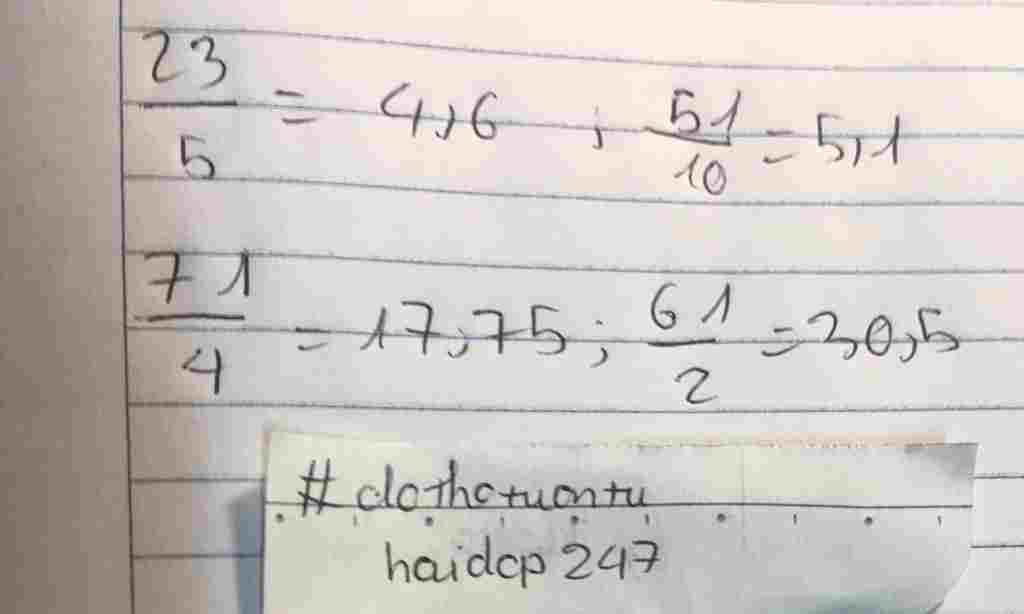 23/5 = 4,6 ; 51/10 = 5,1
71/4 = 17,75 ; 61/2 = 30,5
#dothotuontu
haidcp 247